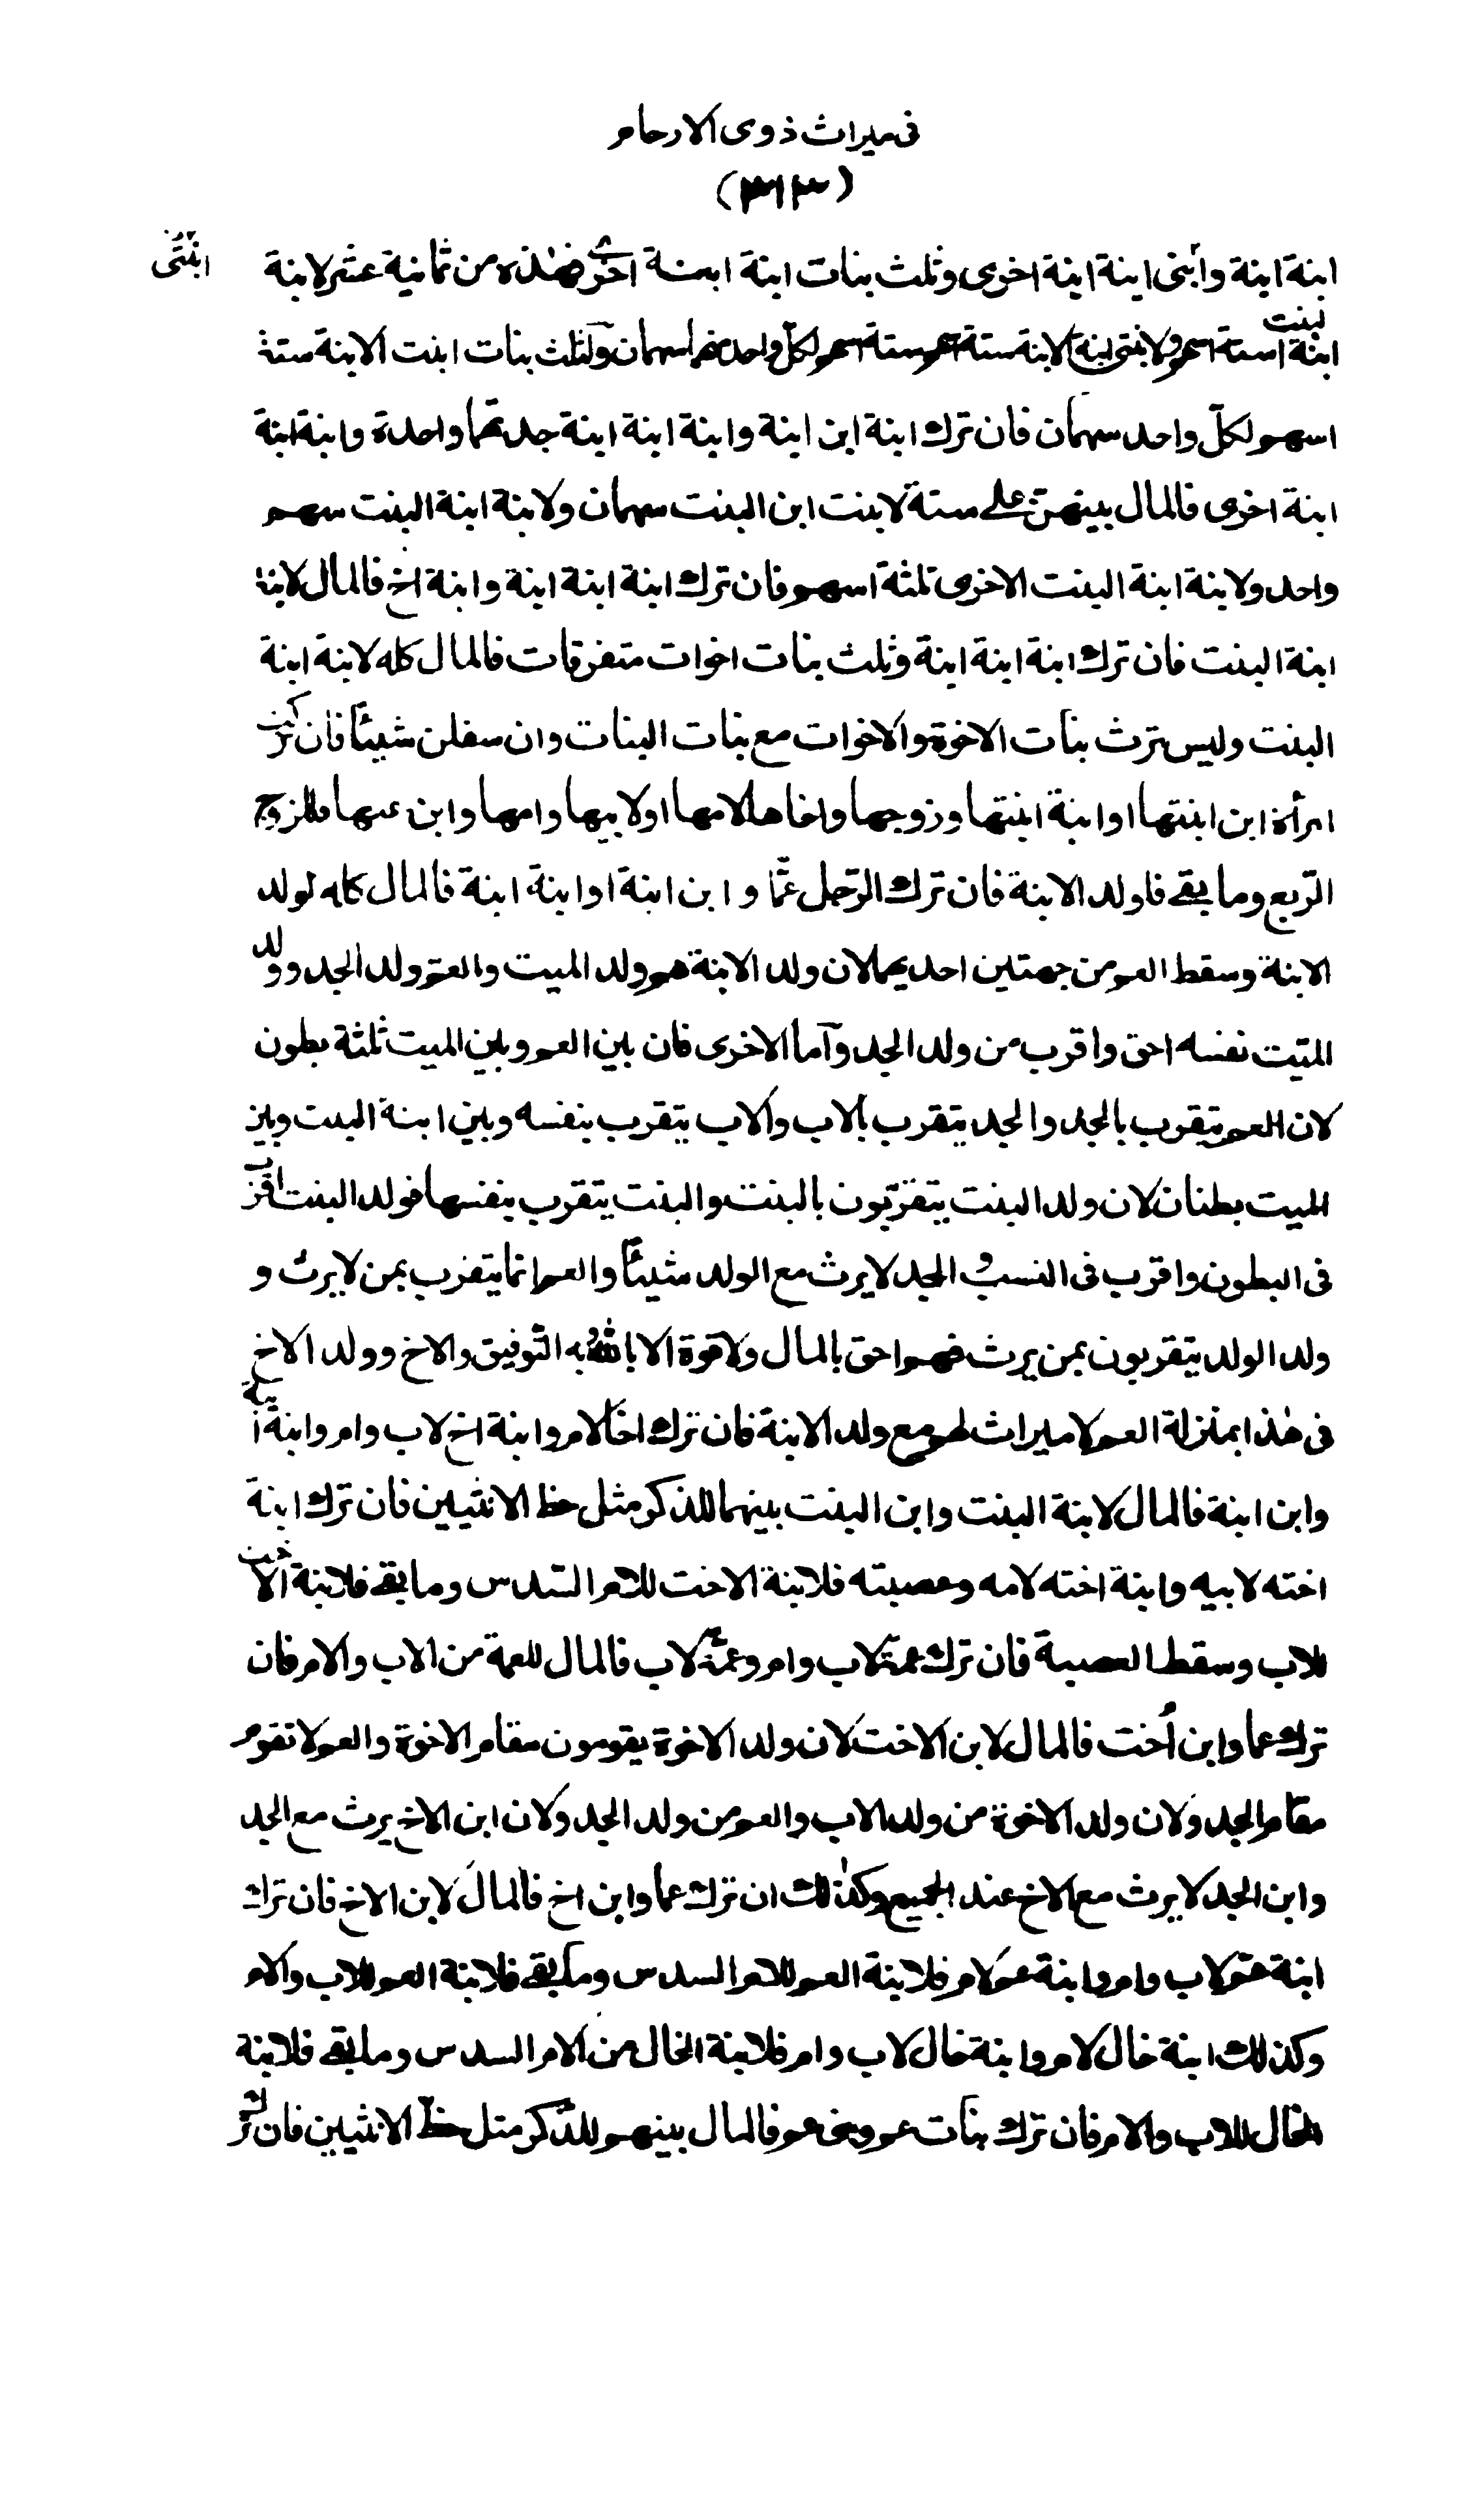 فى ميراث ذوى الارحام
(٣١٣)
ابنة ابنة وابنى ابنة ابنة اخرى وثلث بنات ابنة ابنة اخرى فهذه من ثمانية عشر لابنة
ابنتى
بنت
ابنة ستة اسهم ولابنتى ابنة الابنة ستة اسهم لكل واحد منهم سهمان ولثلث بنات ابنت الابنة ستة
اسهم لكلّ واحد سهمان فان ترك ابنة ابن ابنة وابنة ابنة ابنة جدتهما واحدة وابنة ابنة
ابنة اخرى فالمال بينهنّ على ستة لابنت ابن البنت سهمان ولابنة ابنة البنت سهم
واحد ولابنة ابنة البنت الاخرى ثلثة اسهم فان ترك ابنة ابنة ابنة وابنة اخ فالمال لابنة
ابنة البنت فان ترك ابنة ابنة ابنة وثلث بنات اخوات متفرقات فالمال كله لابنة ابنة
البنت وليس ترث بنات الاخوة والاخوات مع بنات البنات وان سفلن شيئاً فان تركت
امرأة ابن ابنتها او ابنة ابنتها وزوجها واخاها لامها او لابيها وامها وابن عمها فللزوج
الرّبع وما بقى فلولد الابنة فان ترك الرّجل عمّا و ابن ابنة او ابنة ابنة فالمال كله لولد
الابنة وسقط العم من جهتين احديهما لان ولد الابنة هم ولد الميت والعم ولد الجد وولد
الميّت نفسه احق واقرب من ولد الجد وآما الاخرى فان بين العم وبين الميت ثلثة بطون
لان العم يتقرب بالجد والجد يتقرب بالاب والاب يتقرب بنفسه وبين ابنة البنت وبين
الميت بطنان لان ولد البنت يتقرّبون بالبنت والبنت يتقرب بنفسها فولد البنت اقرب
فى البطون واقرب فى النسب و الجد لا يرث مع الولد شيئاً والعم انما يتقرب بمن لا يرث و
ولد الولد يتقربون بمن يرث فهم احق بالمال ولا قوة الا بالله وبه التّوفيق والاخ وولد الاخ
فى هذا بمنزلة العم لا ميراث لهم مع ولد الابنة فان ترك اخاً لام وابنة اخ لاب وام وابنة ابنة
وابن ابنة فالمال لابنة البنت وابن البنت بينهما للذكر مثل حظ الانثيين فان ترك ابنة
اخته لابيه وابنة اخته لامه وعصبته فلابنة الاخت للام السّدس وما بقى فلابنة الاخت
للاب وسقط العصبة فان ترك عمة لاب وام وعمّة لاب فالمال للعمة من الاب والام فان
ترك عما وابن أخت فالمال لابن الاخت لان ولد الاخوة يقومون مقام الاخوة والعم لا تقوم
مقام الجد ولان ولد الاخوة من ولد الاب والعم من ولد الجد ولان ابن الاخ يرث مع الجد
وابن الجد لا يرث مع الاخ عند الجميع وكذلك ان ترك عما وابن اخ فالمال لابن الاخ فان ترك
ابنة عم لاب وام وابنة عم لام فلابنة العم للام السدس وما بقى فلابنة العم للاب والام
وكذلك ابنة خال لام وابنة خال لاب وام فلابنة الخال من الام السدس وما بقى فلابنة
الخال للاب والام فان ترك بنات عم وبنى عم فالمال بينهم للذّكر مثل حظّ الانثيين فان ترك